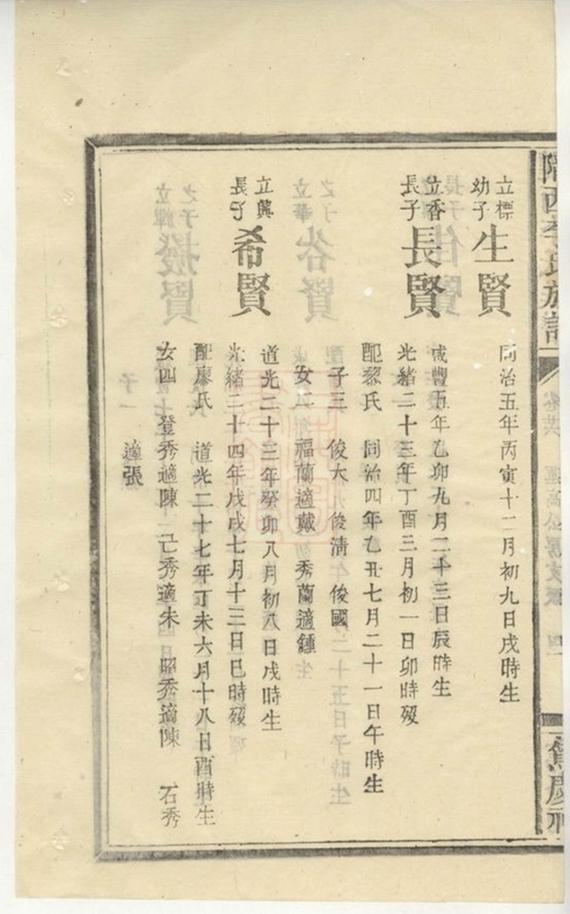 隴西李氏族譜
立標幼子 生賢
同治五年丙寅十二月初九日戌時生
立香長子 長賢
咸豐五年乙卯九月二十三日辰時生
光緒二十三年丁酉三月初一日卯時歿
配黎氏 同治四年乙丑七月二十一日午時生
子三 俊大 俊清 俊國
女二 福蘭適戴 秀蘭適鍾
立興長子 希賢
道光二十三年癸卯八月初八日戌時生
光緒二十四年戊戌七月十三日巳時歿
配廖氏 道光二十七年丁未六月十八日酉時生
女四 登秀適陳 己秀適朱 昭秀適陳 石秀
適張